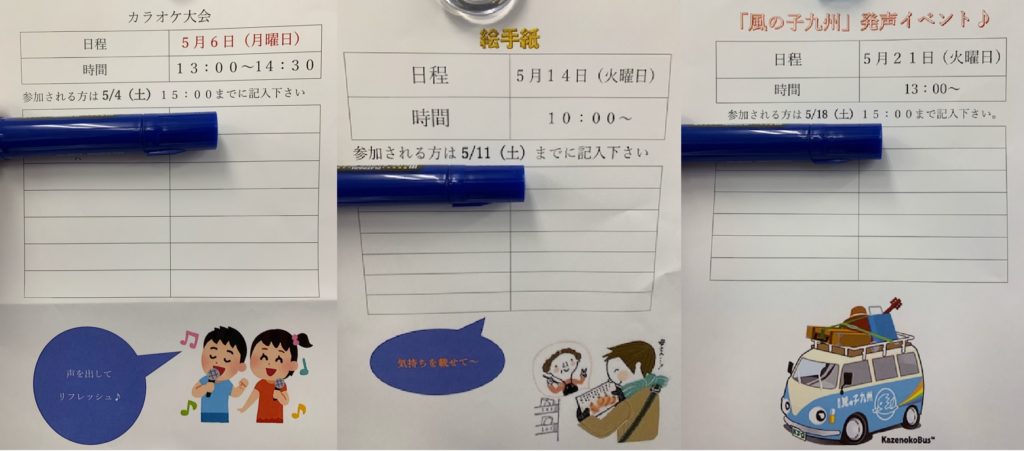 カラオケ大会
日程 5月6日（月曜日）
時間 13：00～14：30
参加される方は5/4（土）15：00までに記入下さい
声を出して
リフレッシュ♪
絵手紙
日程 5月14日（火曜日）
時間 10：00～
参加される方は5/11（土）までに記入下さい
気持ちを載せて～
「風の子九州」発声イベント♪
日程 5月21日（火曜日）
時間 13:00～
参加される方は5/18（土）15：00までに記入下さい。
風の子九州
KazenokoBus™